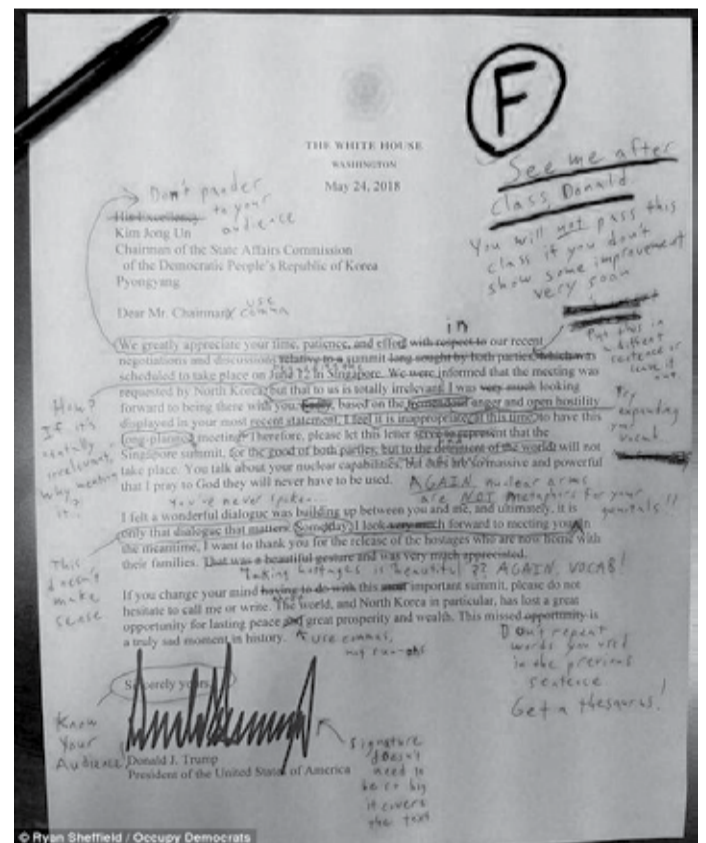 F
See me after
class, Donald.
You will not pass this
class if you don't
show some improvement
very soon
THE WHITE HOUSE
WASHINGTON
May 24, 2018
Don't pander
to your
audience
His Excellency
Kim Jong Un
Chairman of the State Affairs Commission
of the Democratic People's Republic of Korea
Pyongyang
Dear Mr. Chairman
use
comma
in
Put this in
a different
sentence or
leave it
out.
We greatly appreciate your time, patience, and effort with respect to our recent
negotiations and discussions relative to a summit long sought by both parties, which was
scheduled to take place on June 12 in Singapore. We were informed that the meeting was
requested by North Korea, but that to us is totally irrelevant. I was very much looking
forward to being there with you. Sadly, based on the tremendous anger and open hostility
displayed in your most recent statement, I feel it is inappropriate, at this time, to have this
long-planned meeting. Therefore, please let this letter serve to represent that the
Singapore summit, for the good of both parties, but to the detriment of the world, will not
take place. You talk about your nuclear capabilities, but ours are so massive and powerful
that I pray to God they will never have to be used.
How?
If it's
totally
irrelevant,
why mention
it..
Try
expanding
your
vocab
AGAIN nuclear arms
are NOT metaphors for your
genitals!!
You've never spoken...
I felt a wonderful dialogue was building up between you and me, and ultimately, it is
only that dialogue that matters. Some day, I look very much forward to meeting you. In
the meantime, I want to thank you for the release of the hostages who are now home with
their families. That was a beautiful gesture and was very much appreciated.
This
doesn't
make
sense
Taking hostages is beautiful?? AGAIN, VOCAB!
If you change your mind having to do with this most important summit, please do not
hesitate to call me or write. The world, and North Korea in particular, has lost a great
opportunity for lasting peace and great prosperity and wealth. This missed opportunity is
a truly sad moment in history.
use commas,
no run-ons
Don't repeat
words you used
in the previous
sentence.
Get a thesaurus!
Sincerely yours,
Know
Your
Audience
Donald J. Trump
President of the United States of America
signature
doesn't
need to
be so big
it covers
the text
© Ryan Sheffield / Occupy Democrats